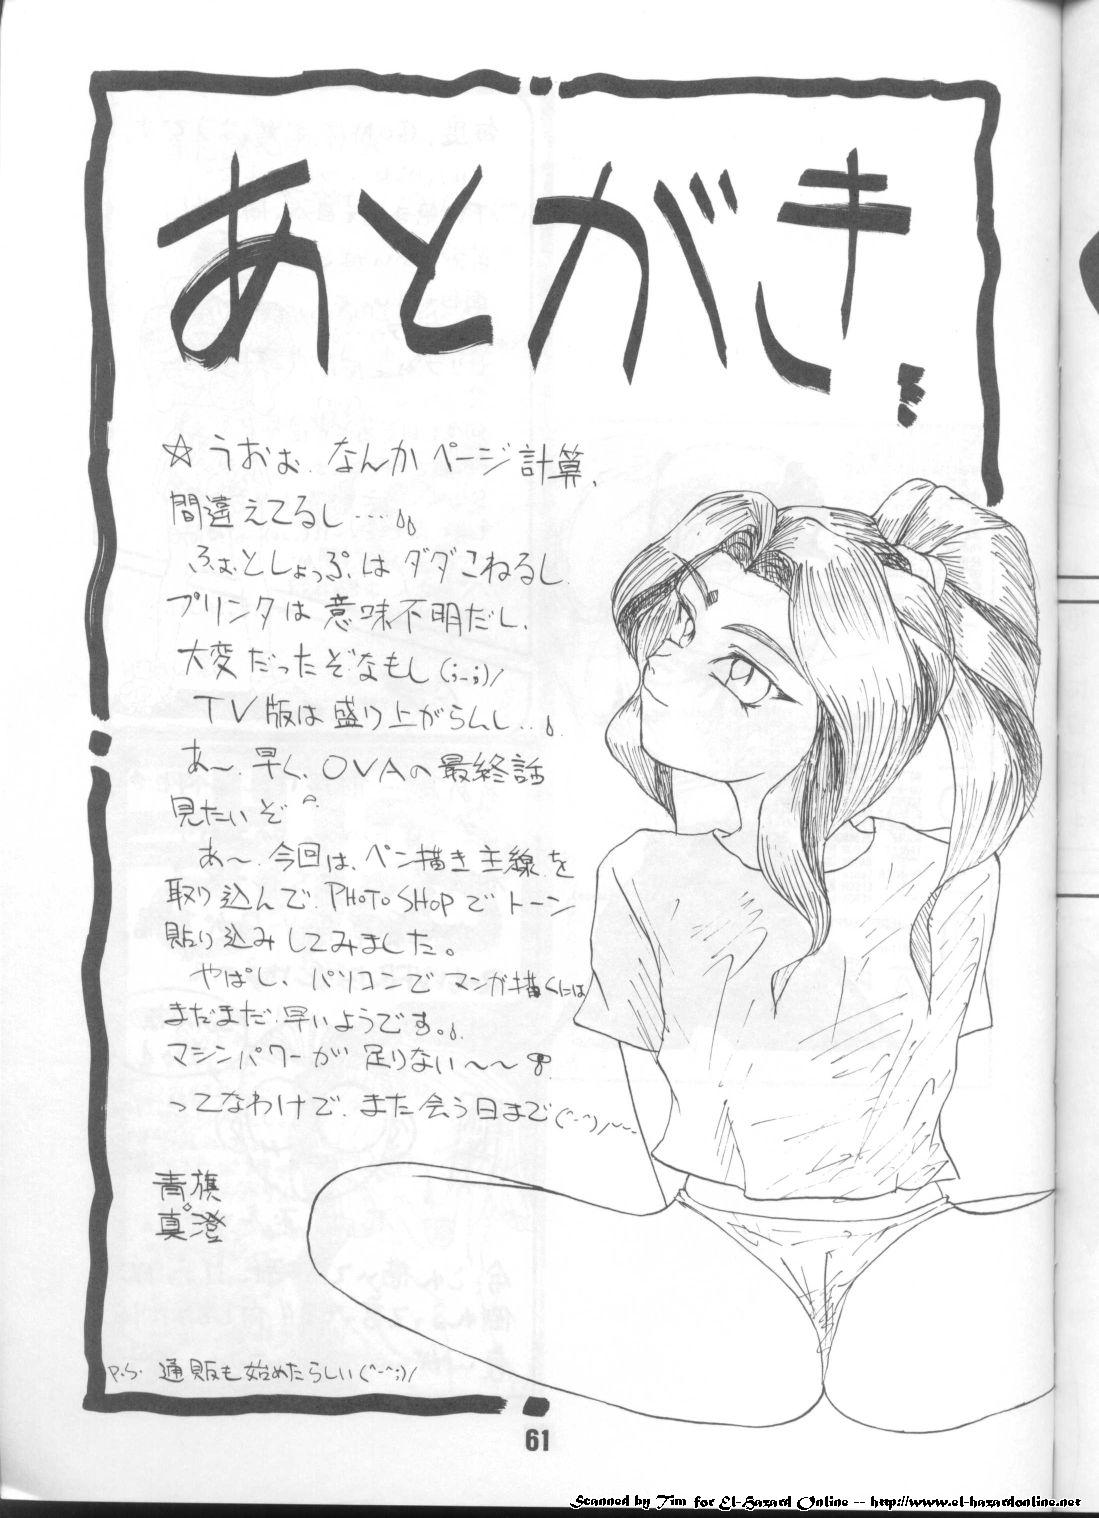 あとがき。
☆うおぉ、なんかページ計算、
間違えてるし…
ふぉとしょっぷはダダこねるし
プリンタは意味不明だし、
大変だったぞなもし(;-;)/
TV版は盛り上がらんし…
あ〜、早く、OVAの最終話
見たいぞ
あ〜、今回は、ペン描き主線を
取り込んで、PHOTOSHOPでトーン
貼り込みしてみました。
やぱし、パソコンでマンガ描くには
まだまだ早いようです。
マシンパワーが足りない〜〜
ってなわけで、また会う日まで(^-^)/~~
青旗
真澄
P.S. 通販も始めたらしい(^-^;)/
61
Scanned by Tim for El-Hazard Online -- http://www.el-hazardonline.net